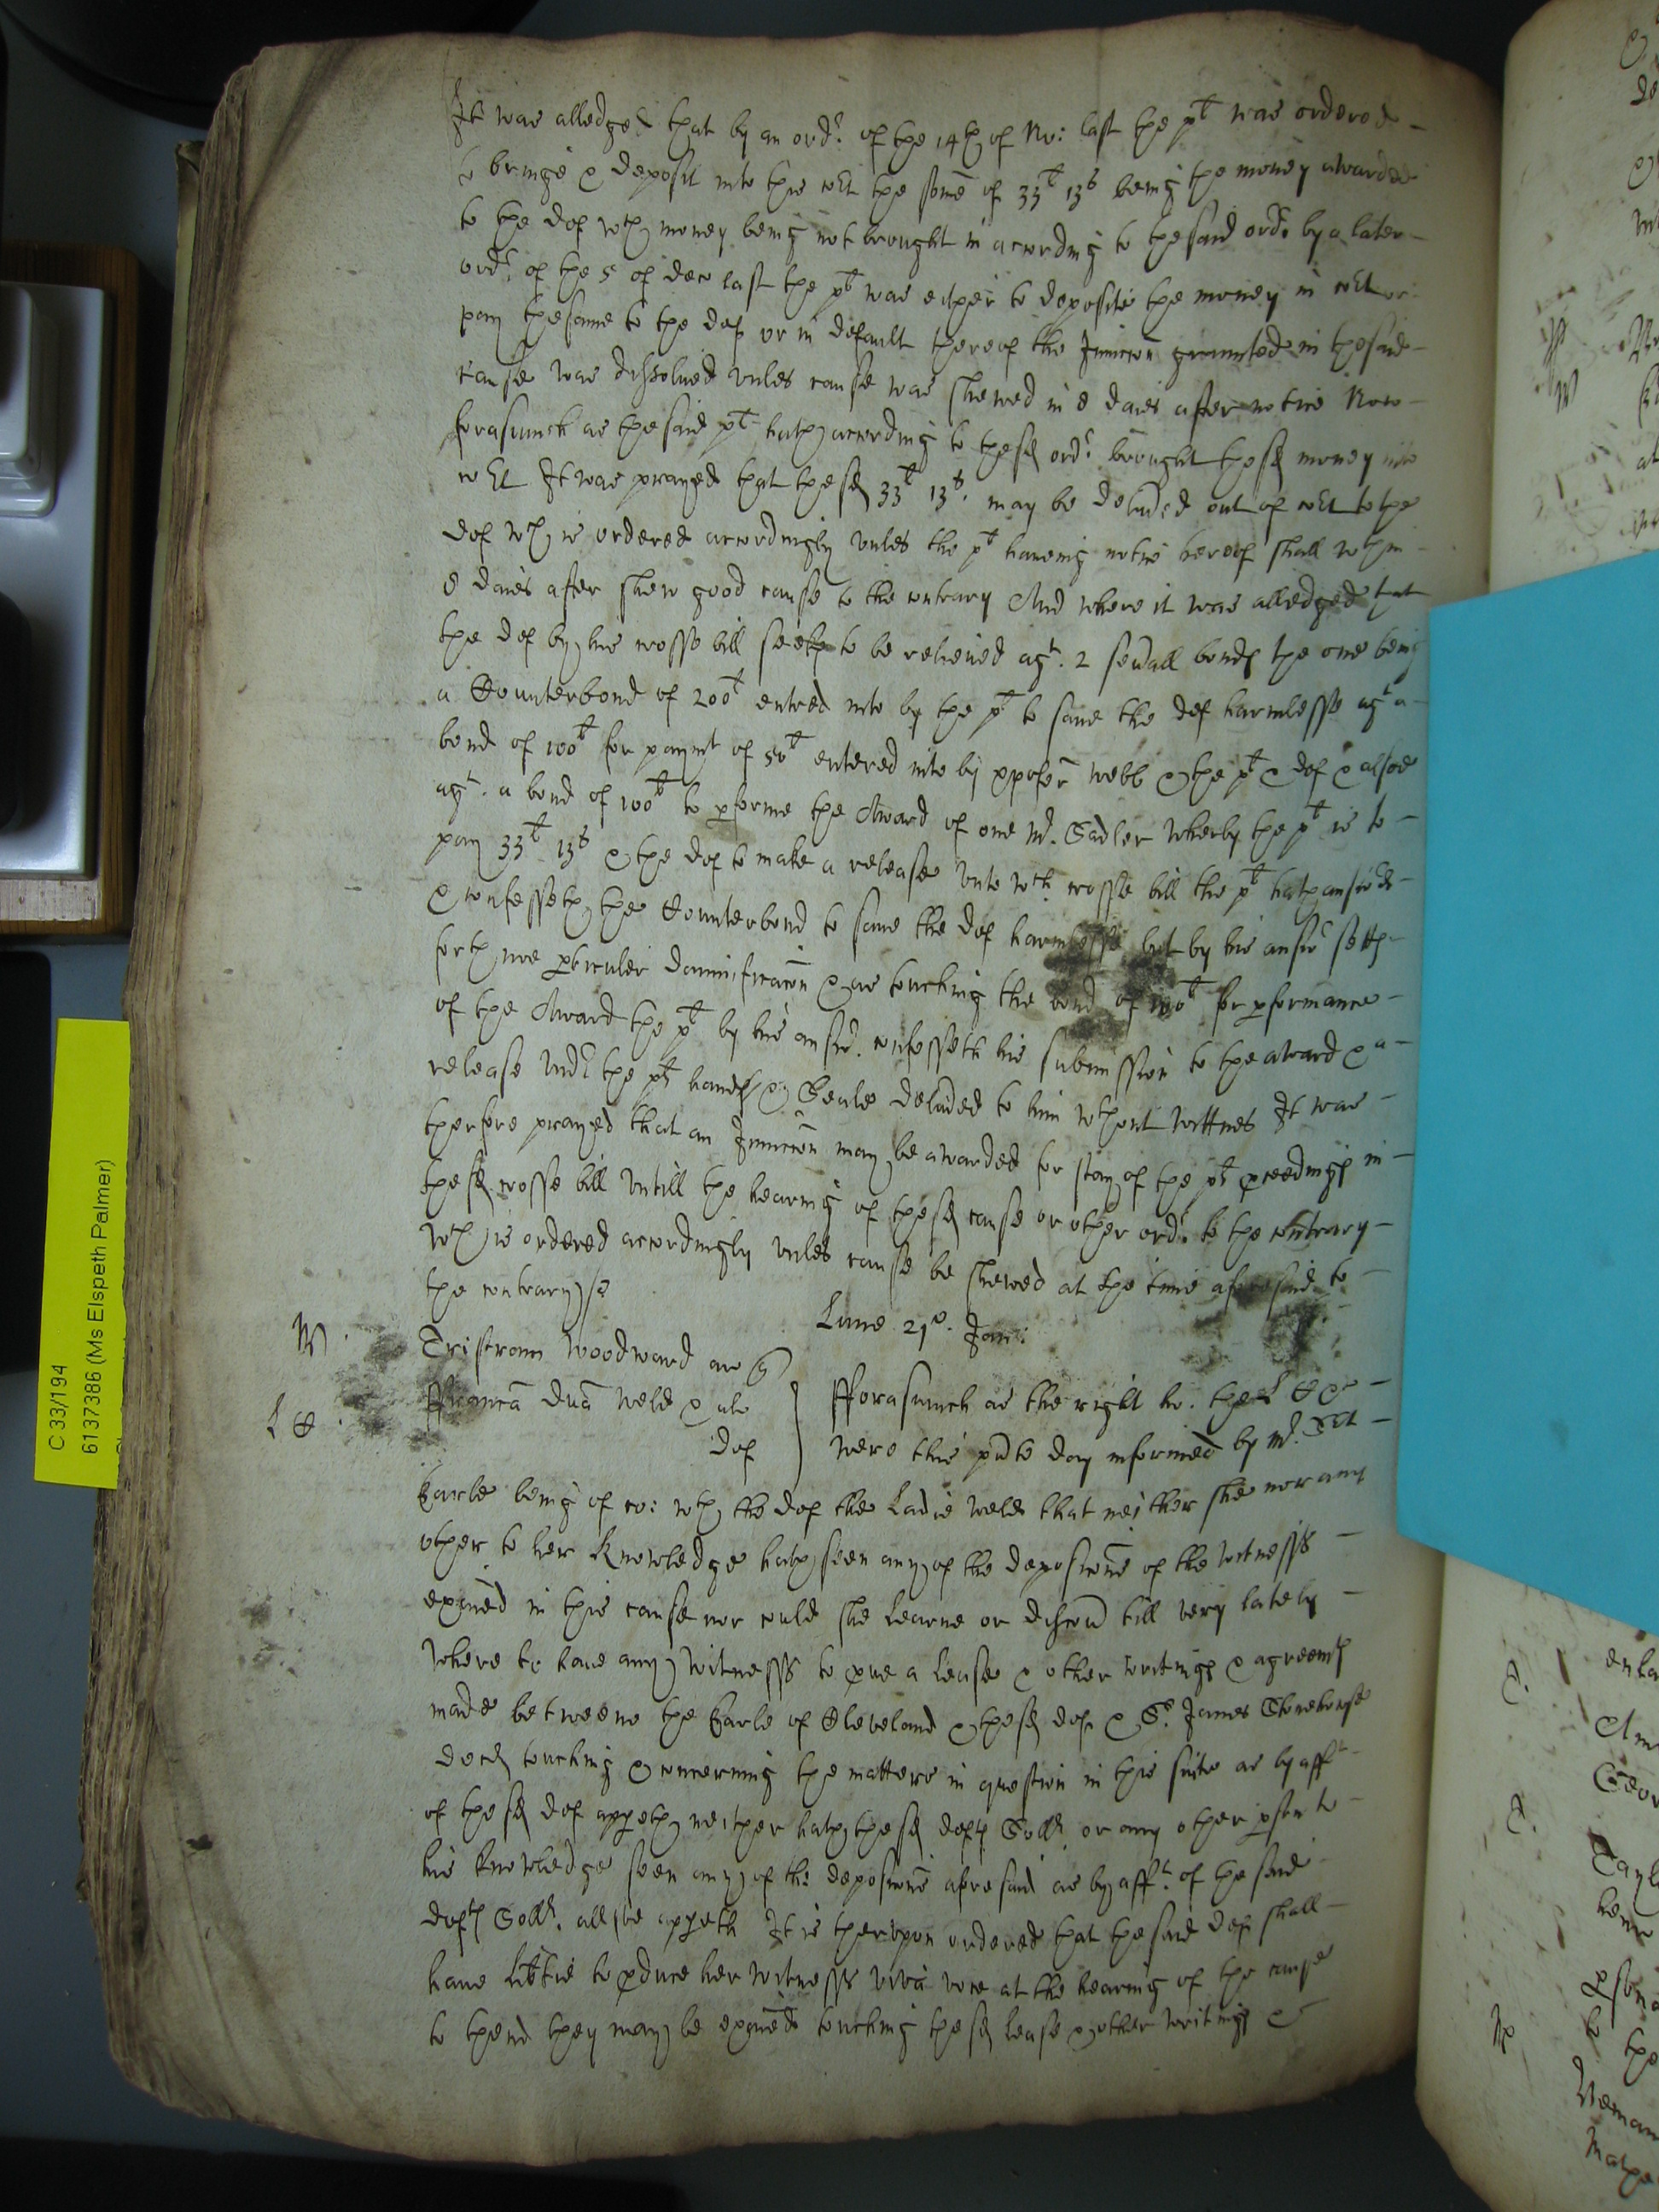 It was alledged that by an ordr of the 14th of No: last the plt was ordered
to bringe & deposit into this cort the some of 33l 13s being the money awarded
to the def wch money being not brought in according to the said ordr by a later
ordr of the 5 of dec last the plt was either to deposite the money in cort or
pay the same to the def or in default thereof the Iniuccon graunted in the said
cause was dissolued vnles cause was shewed in 8 daies after notice Now
forasmuch as the said plt hath according to the sd ordr brought the sd money into
cort It was prayed that the sd 33l 13s. may be deliued out of cort to the
def wch is ordered accordingly vnles the plt haueing notice hereof shall wthin
8 daies after shew good cause to the contrary And where it was alledged that
the def by his crosse bill seeketh to be relieued agt. 2 seuall bonds the one being
a Counterbond of 200l entred into by the plt to saue the def harmlesse agt a
bond of 100l for paymt of 50l entered into by xpofer webb & the plt & def & alsoe
agt. a bond of 100l to pforme the Award of one Mr. Sadler wherby the plt is to
pay 33l 13s & the def to make a release vnto wch crosse bill the plt hath answered
& confesseth the Counterbond to saue the def harmlesse but by his answr setts
forth noe pticuler damnificacon & as touching the bond of 100l for pformance
of the Award the plt by his answr. confesseth his submission to the award & a
release vndr the plts hands & Seale deliued to him wthout wittnes It was
therfore prayed that an Iniuccon may be awarded for stay of the plts pceedings in
the sd crosse bill vntill the hearing of the sd cause or other ordr to the contrary
wch is ordered accordingly vnles cause be shewed at the time aforesaid to
the contrary
Lune 21o. Jan:
Tristram Woodward ar
ffrancã Dnã Weld & al
Def
fforasmuch as the right ho: the L C &c
were this pnte day informed by Mr. Sit
L C.
Earle being of co: wth the def the Ladie Weld that neither she nor any
other to her knowledge hath seen any of the deposicons of the witnesses
exaied in this cause nor could she learne or discou till very lately
where to haue any witnesses to pue a lease & other writings & agreemts
made betweene the Earle of Cleveland & the sd def & Sr. James Stonehouse
decd touching & concerning the matters in question in this suite as by afft
of the sd def appeth neither hath the sd defts Sollr. or any other pson to
his knowledge seen any of the deposicons aforesaid as by afft. of the said
defts Sollr. alsoe appeth It is therupon ordered that the said def shall
haue libtie to pduce her witnesses viva voce at the hearing of the cause
to thend they may be exaied touching the sd lease & other writings &
C 33/194
6137386 (Ms Elspeth Palmer)